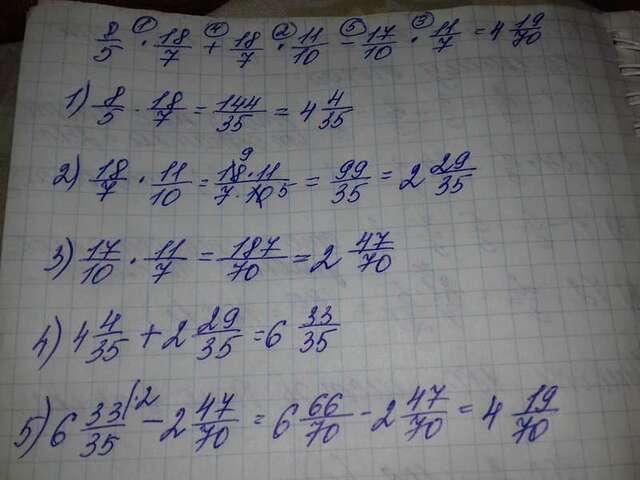 8/5 ① · 18/7 ④ + 18/7 ② · 11/10 ⑤ − 17/10 ③ · 11/7 = 4 19/70
1) 8/5 · 18/7 = 144/35 = 4 4/35
2) 18/7 · 11/10 = 18 9 · 11 / 7 · 10 5 = 99/35 = 2 29/35
3) 17/10 · 11/7 = 187/70 = 2 47/70
4) 4 4/35 + 2 29/35 = 6 33/35
5) 6 33/35 |·2 − 2 47/70 = 6 66/70 − 2 47/70 = 4 19/70